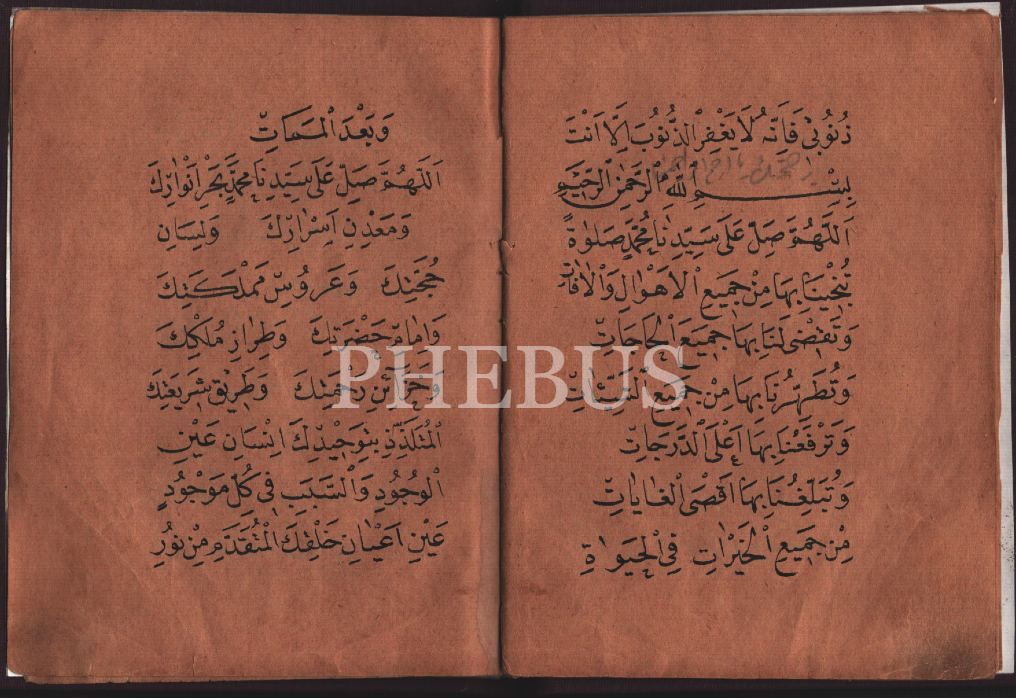 ذُنُوبِى فَاِنَّهُ لَا يَغْفِرُ الذُّنُوبَ اِلَّا اَنْتَ
بِسْمِ اللهِ الرَّحْمٰنِ الرَّحِيمِ
اَللّٰهُمَّ صَلِّ عَلٰى سَيِّدِنَا مُحَمَّدٍ صَلٰوةً
تُنْجِينَا بِهَا مِنْ جَمِيعِ الْاَهْوَالِ وَالْاٰفَاتِ
وَتَقْضِى لَنَا بِهَا جَمِيعَ الْحَاجَاتِ
وَتُطَهِّرُنَا بِهَا مِنْ جَمِيعِ السَّيِّئَاتِ
وَتَرْفَعُنَا بِهَا اَعْلَى الدَّرَجَاتِ
وَتُبَلِّغُنَا بِهَا اَقْصَى الْغَايَاتِ
مِنْ جَمِيعِ الْخَيْرَاتِ فِى الْحَيٰوةِ
وَبَعْدَ الْمَمَاتِ
اَللّٰهُمَّ صَلِّ عَلٰى سَيِّدِنَا مُحَمَّدٍ بَحْرِ اَنْوَارِكَ
وَمَعْدِنِ اَسْرَارِكَ وَلِسَانِ
حُجَّتِكَ وَعَرُوسِ مَمْلَكَتِكَ
وَاِمَامِ حَضْرَتِكَ وَطِرَازِ مُلْكِكَ
وَخَزَائِنِ رَحْمَتِكَ وَطَرِيقِ شَرِيعَتِكَ
الْمُتَلَذِّذِ بِتَوْحِيدِكَ اِنْسَانِ عَيْنِ
الْوُجُودِ وَالسَّبَبِ فِى كُلِّ مَوْجُودٍ
عَيْنِ اَعْيَانِ خَلْقِكَ الْمُتَقَدِّمِ مِنْ نُورِ
PHEBUS